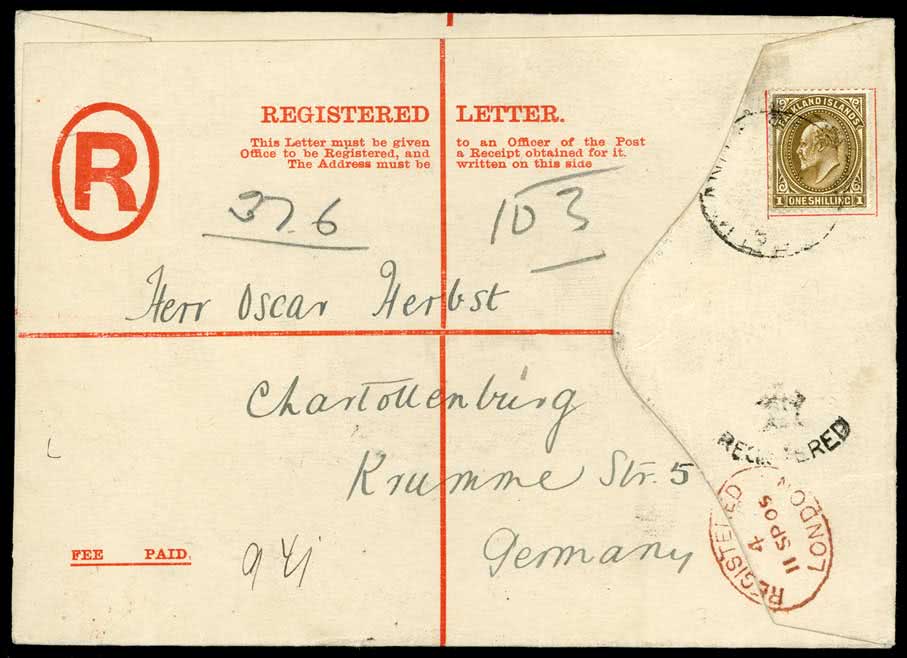 REGISTERED LETTER.
This Letter must be given to an Officer of the Post
Office to be Registered, and a Receipt obtained for it.
The Address must be written on this side
R
FALKLAND ISLANDS
1 ONE SHILLING 1
37.6
103
Herr Oscar Herbst
Charlottenburg
Krumme Str. 5
Germany
FEE PAID.
941
REGISTERED
REGISTERED LONDON
4
11 SP 05